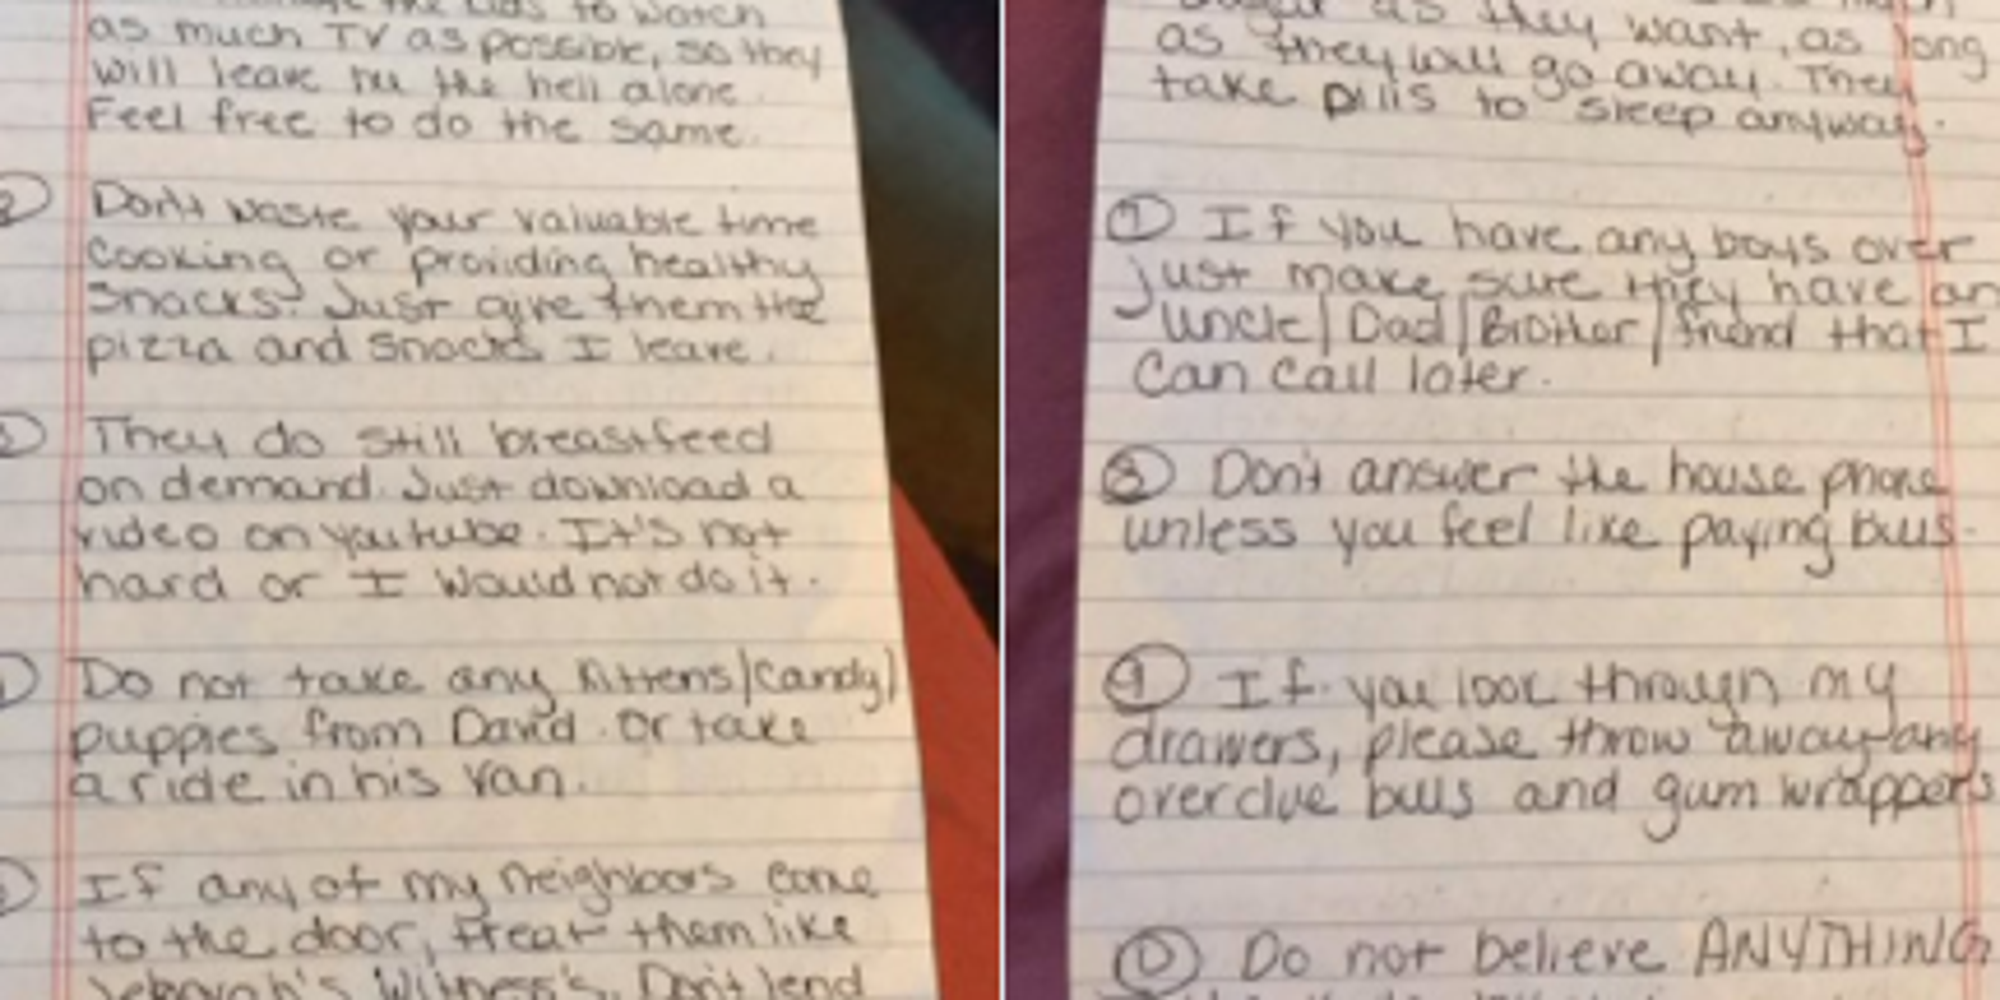 the kids to watch
as much TV as possible, so they
will leave me the hell alone.
Feel free to do the same.
② Don't waste your valuable time
cooking or providing healthy
snacks. Just give them the
pizza and snacks I leave.
They do still breastfeed
on demand. Just download a
video on youtube. It's not
hard or I would not do it.
Do not take any kittens/candy/
puppies from David. or take
a ride in his van.
If any of my neighbors come
to the door, treat them like
Jehovah's Witness's. Don't lend
sugar as they want, as long
as they will go away. They
take pills to sleep anyway.
⑦ If you have any boys over
just make sure they have an
uncle/Dad/Brother/friend that I
can call later.
⑧ Don't answer the house phone
unless you feel like paying bills.
⑨ If you look through my
drawers, please throw away any
overdue bills and gum wrappers
⑩ Do not believe ANYTHING